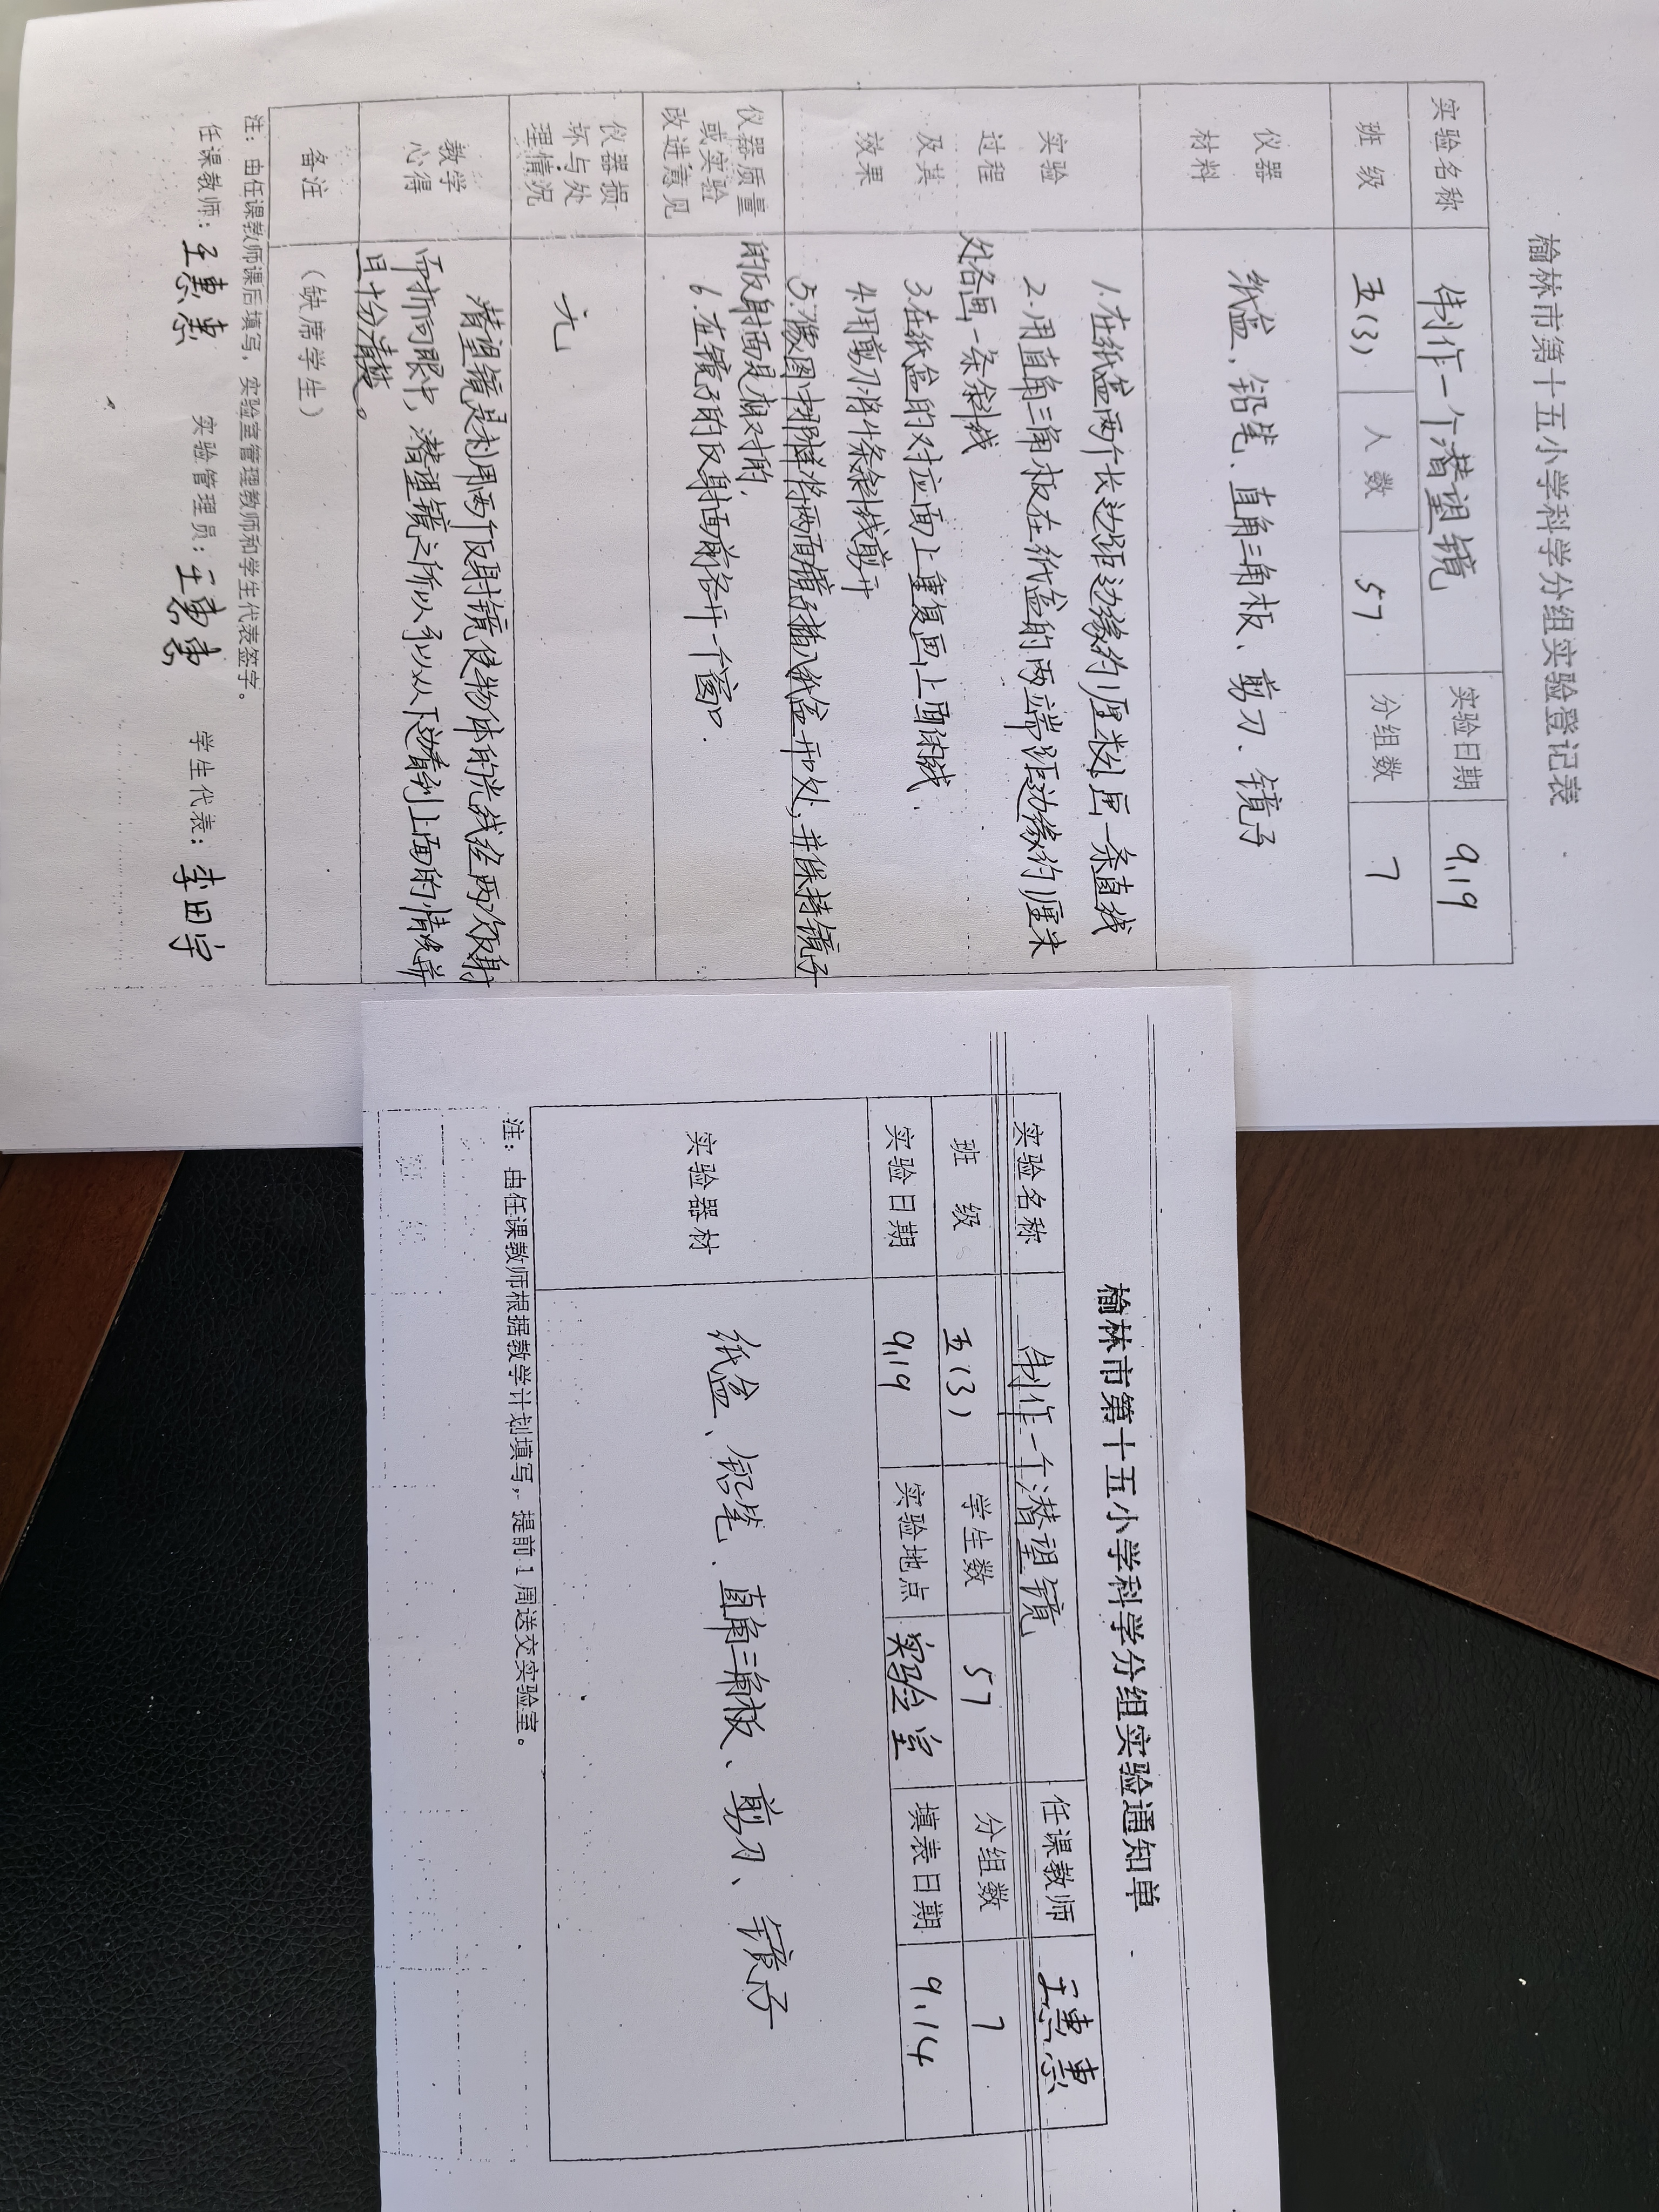 榆林市第十五小学科学分组实验登记表
实验名称 制作一个潜望镜 实验日期 9.19
班级 五(3) 人数 57 分组数 7
仪器
材料
纸盒，铅笔、直角三角板、剪刀、镜子
实验
过程
及其
效果
1.在纸盒两个长边距边缘约1厘米处画一条直线
2.用直角三角板在纸盒的两端距边缘约1厘米
处各画一条斜线
3.在纸盒的对应面上重复画上面斜线.
4.用剪刀将4条斜线剪开
5.像图中那样将两面镜子插入纸盒开口处,并保持镜子
的反射面是相对的,
6.在镜子的反射面前各开一个窗口.
仪器质量
或实验
改进意见
仪器损
坏与处
理情况
无
教学
心得
潜望镜是利用两个反射镜使物体的光线经两次反射
而折向眼中，潜望镜之所以可以从下边看到上面的情况并
且十分清楚。
备注 （缺席学生）
注：由任课教师课后填写，实验室管理教师和学生代表签字。
任课教师：王惠惠 实验管理员：王惠惠 学生代表：李田宇
榆林市第十五小学科学分组实验通知单
实验名称 制作一个潜望镜 任课教师 王惠惠
班级 五(3) 学生数 57 分组数 7
实验日期 9.19 实验地点 实验室 填表日期 9.14
实验器材 纸盒、铅笔、直角三角板、剪刀、镜子
注：由任课教师根据教学计划填写，提前1周送交实验室。